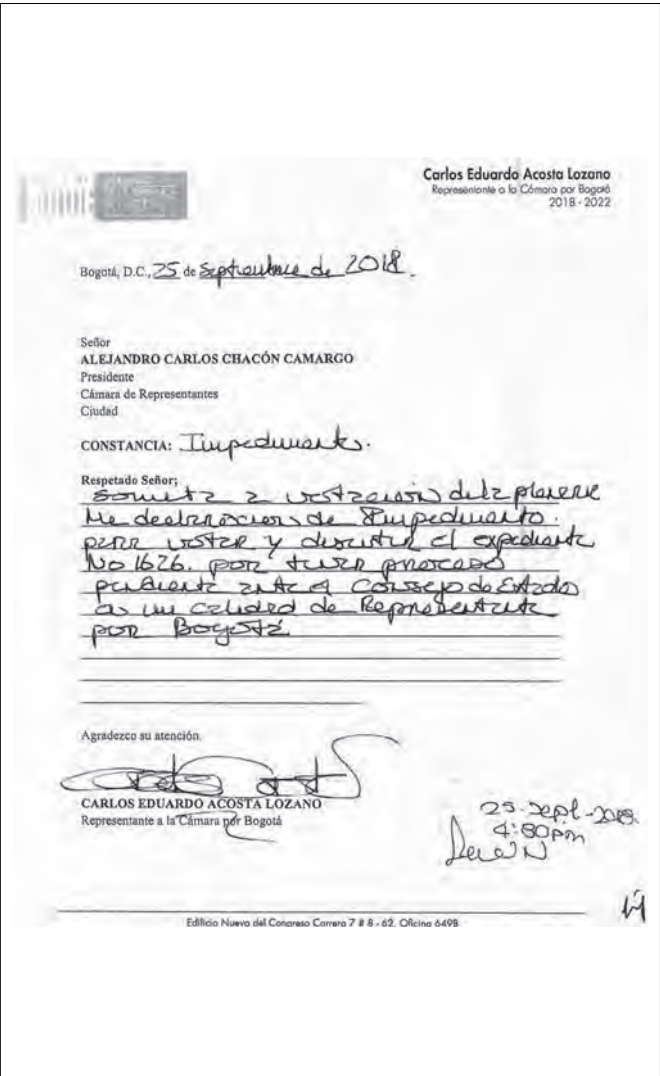 Carlos Eduardo Acosta Lozano
Representante a la Cámara por Bogotá
2018 - 2022
Bogotá, D.C., 25 de Septiembre de 2018.
Señor
ALEJANDRO CARLOS CHACÓN CAMARGO
Presidente
Cámara de Representantes
Ciudad
CONSTANCIA: Impedimento.
Respetado Señor;
Someta a votación de la plenaria
Me declaracion de Impedimento.
para votar y discutir el expediente
No 1626. por tener proceso
pendiente ante el Consejo de Estado
en mi calidad de Representante
por Bogotá
Agradezco su atención.
CARLOS EDUARDO ACOSTA LOZANO
Representante a la Cámara por Bogotá
25-Sept-2018.
4:30pm
Edificio Nuevo del Congreso Carrera 7 # 8 - 62. Oficina 649B